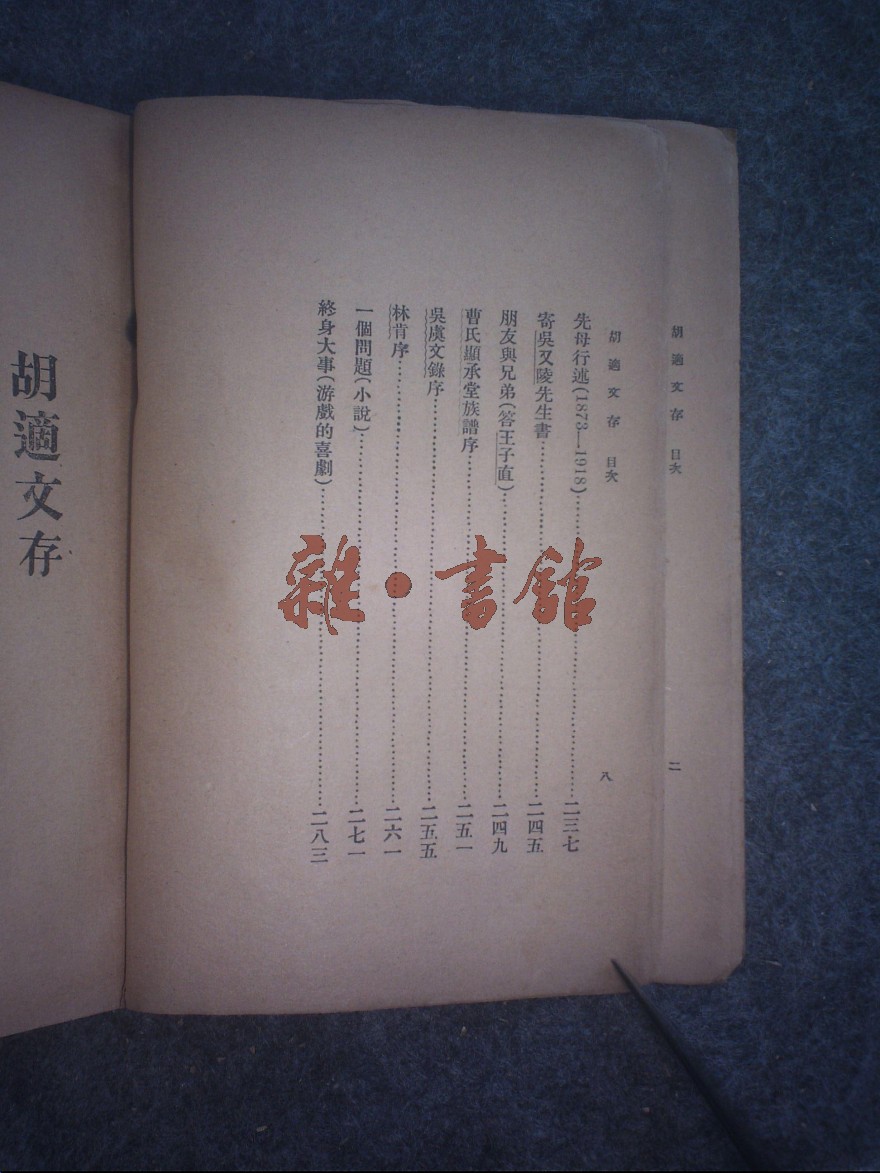 胡適文存 目次 二
胡適文存 目次 八
先母行述(1873—1918)……二三七
寄吳又陵先生書……二四五
朋友與兄弟(答王子直)……二四九
曹氏顯承堂族譜序……二五一
吳虞文錄序……二五五
林肯序……二六一
一個問題(小說)……二七一
終身大事(游戲的喜劇)……二八三
胡適文存
雜·書館